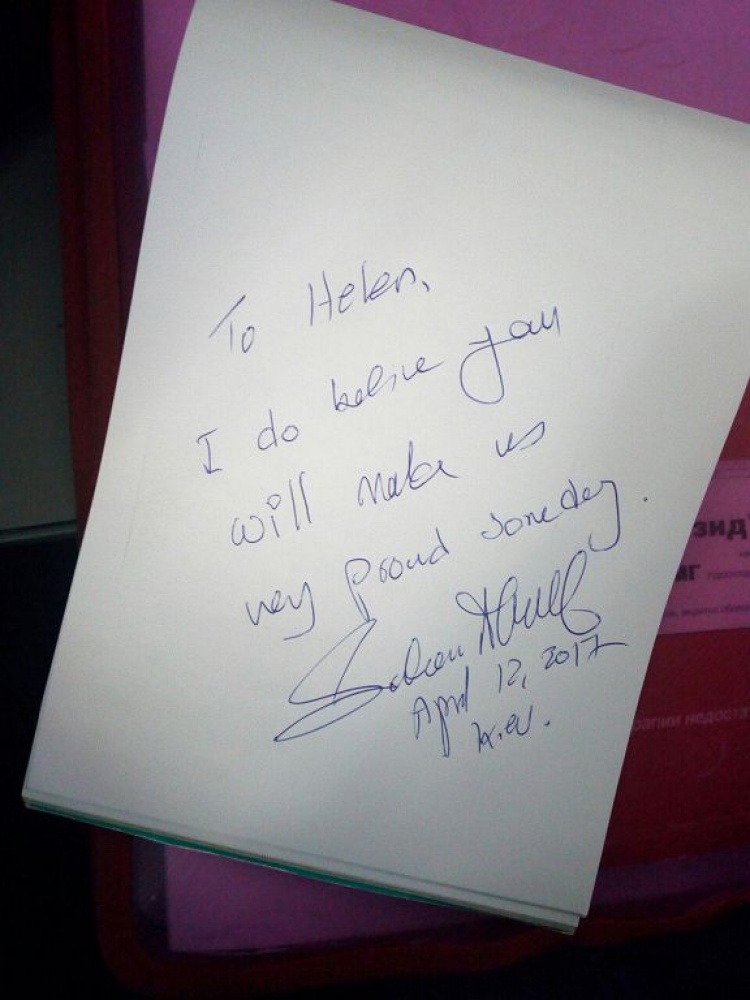 To Helen,
I do belive you
will make us
very proud someday.
April 12, 2017
Kiev.
зид
иг
рапии недоста